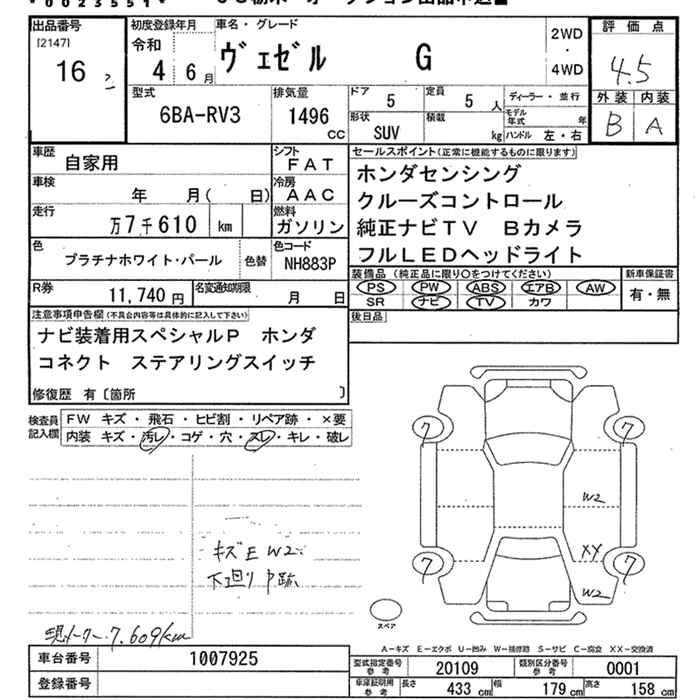 * 0023551 *
出品番号 初度登録年月 車名・グレード 評価点
[2147]
16
令和
4 6月
ヴェゼル G
2WD
・
4WD
4.5
型式 排気量 ドア 定員 外装 内装
6BA-RV3 1496 CC
5 5 人
ディーラー・並行
モデル年式 年
形状 積載
SUV kg
ハンドル 左・右
B A
車歴 シフト セールスポイント(正常に機能するものに限ります)
自家用 FAT
ホンダセンシング
車検 冷房
年 月( 日) AAC
クルーズコントロール
走行 燃料
万7千610 km ガソリン
純正ナビTV Bカメラ
色 色コード
プラチナホワイト・パール 色替 NH883P
フルLEDヘッドライト
装備品 (純正品に限り○をつけてください) 新車保証書
R券 名変通知期限
11,740円 月 日
PS PW ABS エアB AW
SR ナビ TV カワ
有・無
注意事項申告欄(不具合内容等は具体的に記入して下さい) 後日品
ナビ装着用スペシャルP ホンダ
コネクト ステアリングスイッチ
修復歴 有〔箇所 〕
検査員記入欄
FW キズ・飛石・ヒビ割・リペア跡・×要
内装 キズ・汚レ・コゲ・穴・スレ・キレ・破レ
7 7
W2
キズE W2
下廻りP跡
XX
7 7
W2
スペア
現メーター7,609km
A-キズ E-エクボ U-凹み W-補修跡 S-サビ C-腐食 XX-交換済
車台番号 1007925
型式指定番号 参考 20109 類別区分番号 参考 0001
登録番号
車庫証明用 参考 長さ 433cm 幅 179cm 高さ 158cm